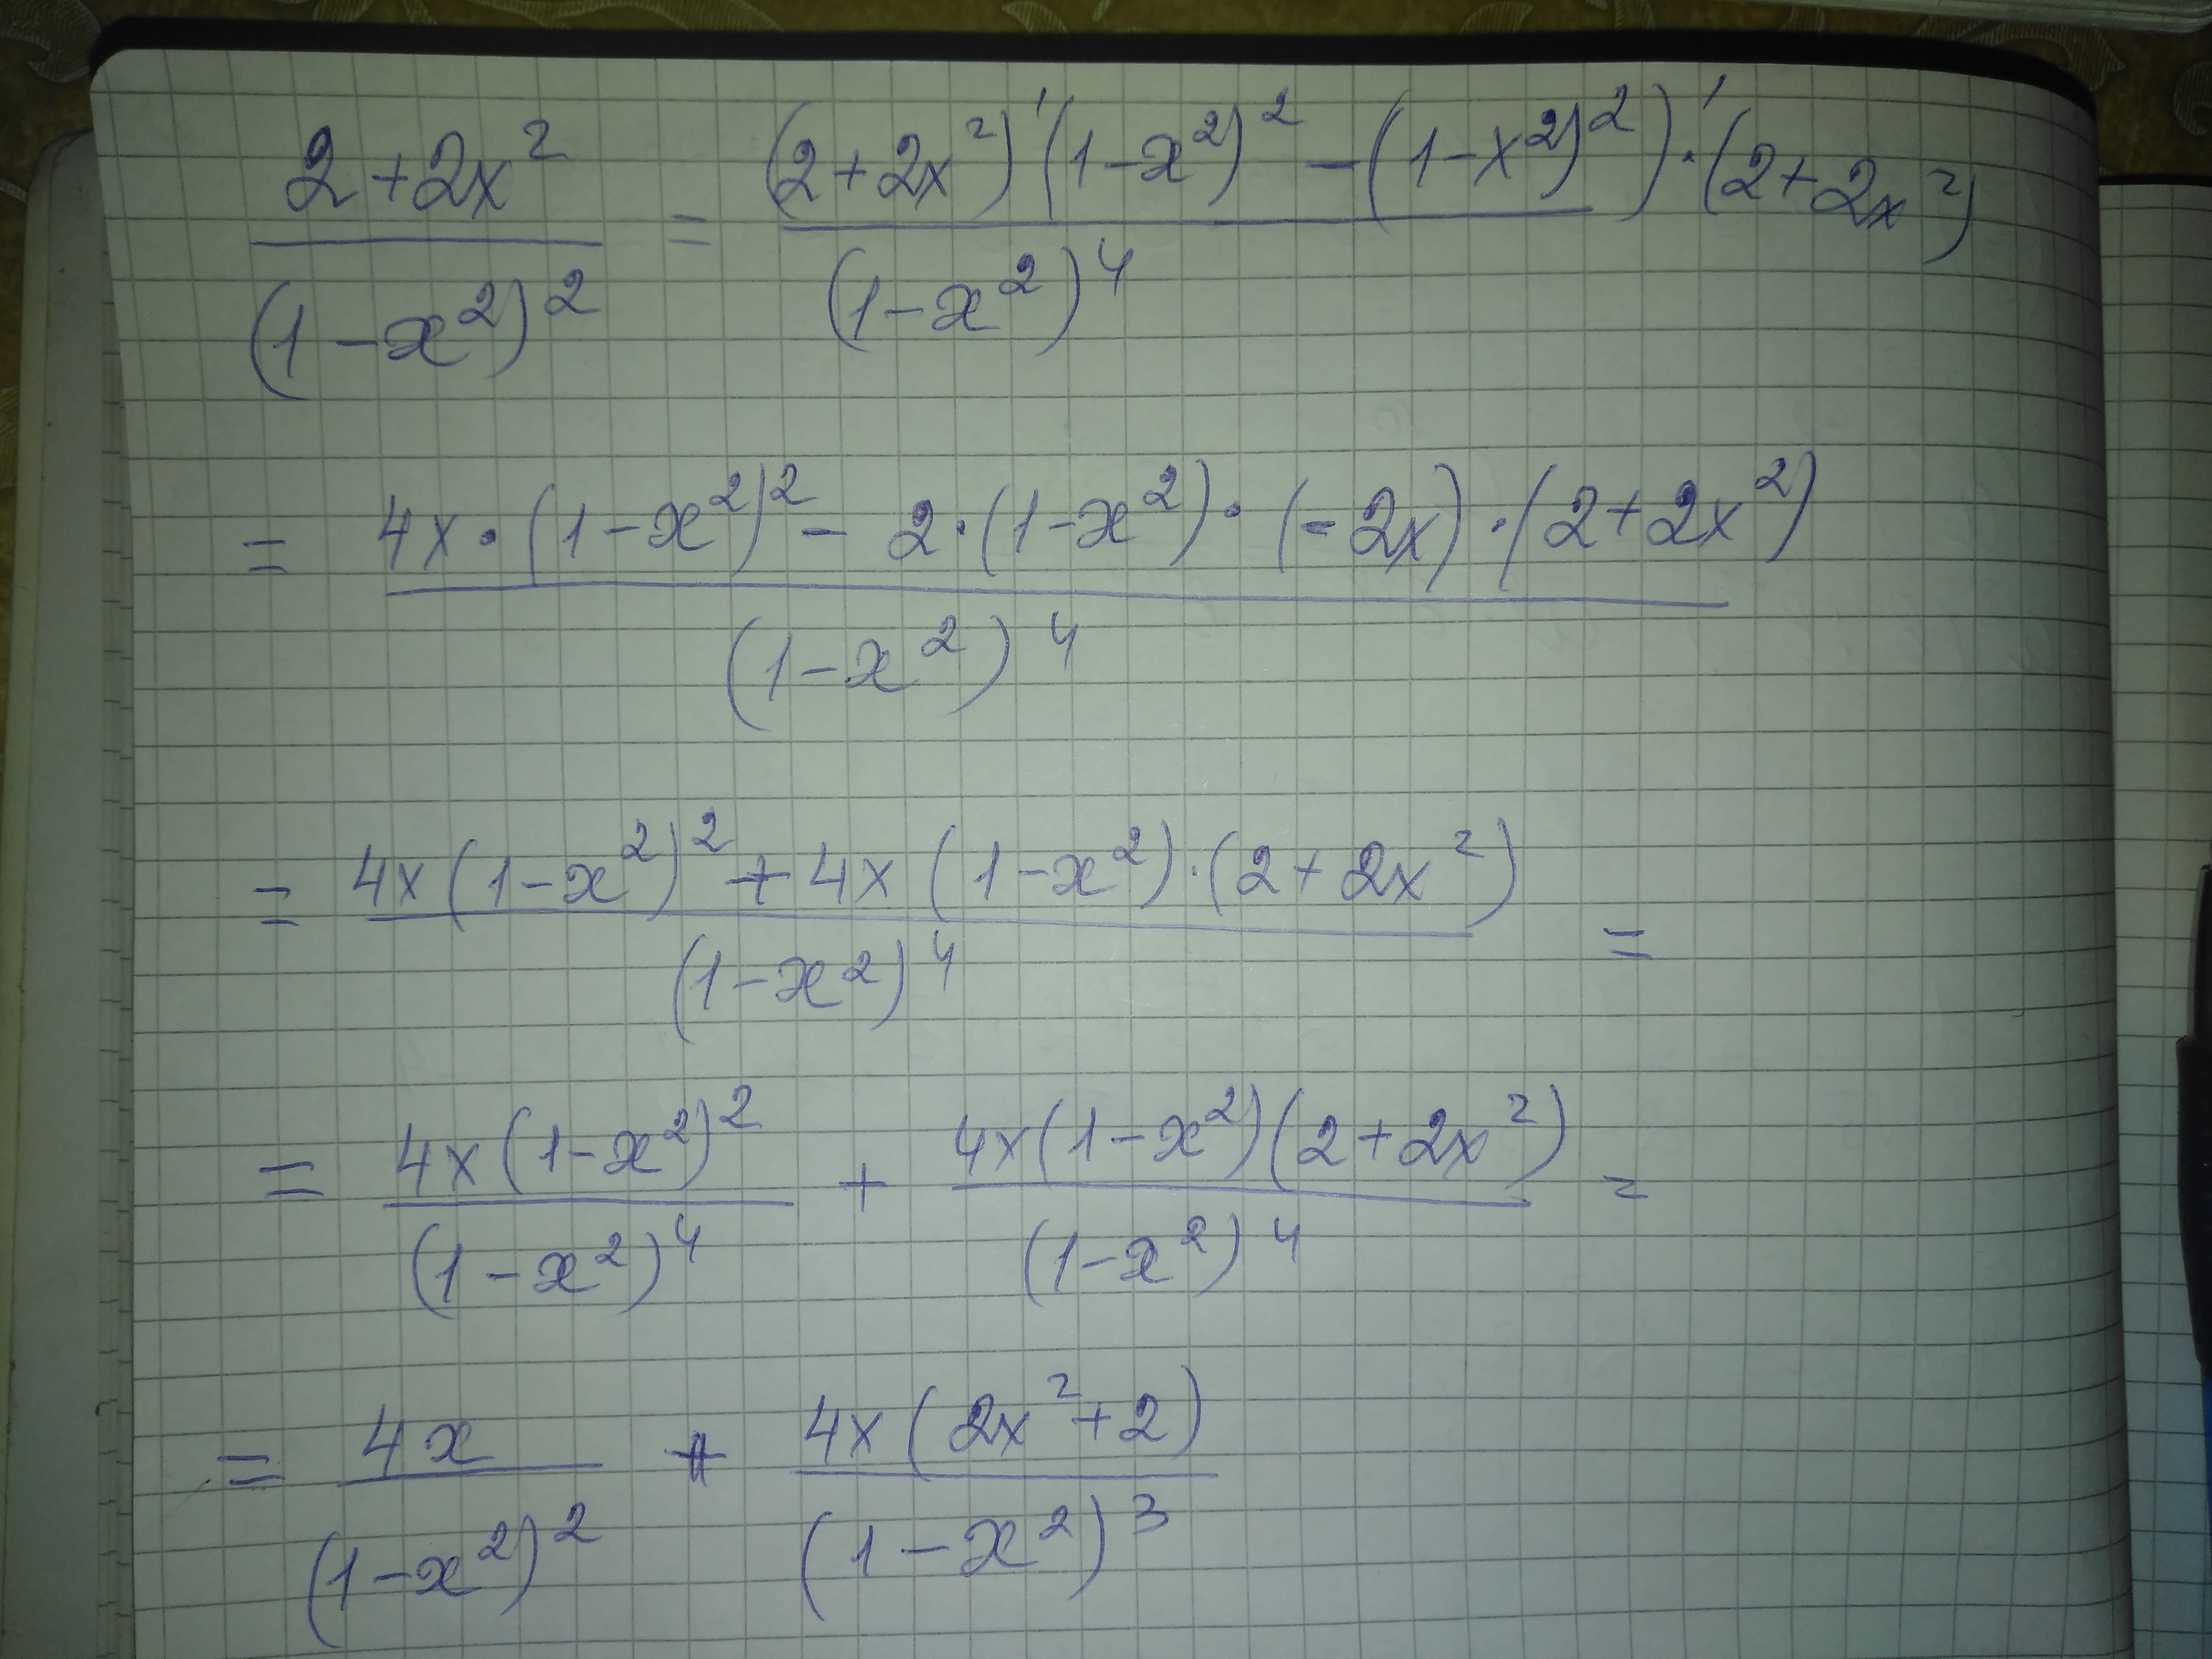 (2+2x²)/(1-x²)² = ((2+2x²)'(1-x²)² - (1-x²)²)'·(2+2x²)/(1-x²)⁴
= (4x·(1-x²)² - 2·(1-x²)·(-2x)·(2+2x²))/(1-x²)⁴
= (4x(1-x²)² + 4x(1-x²)·(2+2x²))/(1-x²)⁴ =
= 4x(1-x²)²/(1-x²)⁴ + 4x(1-x²)(2+2x²)/(1-x²)⁴ =
= 4x/(1-x²)² + 4x(2x²+2)/(1-x²)³